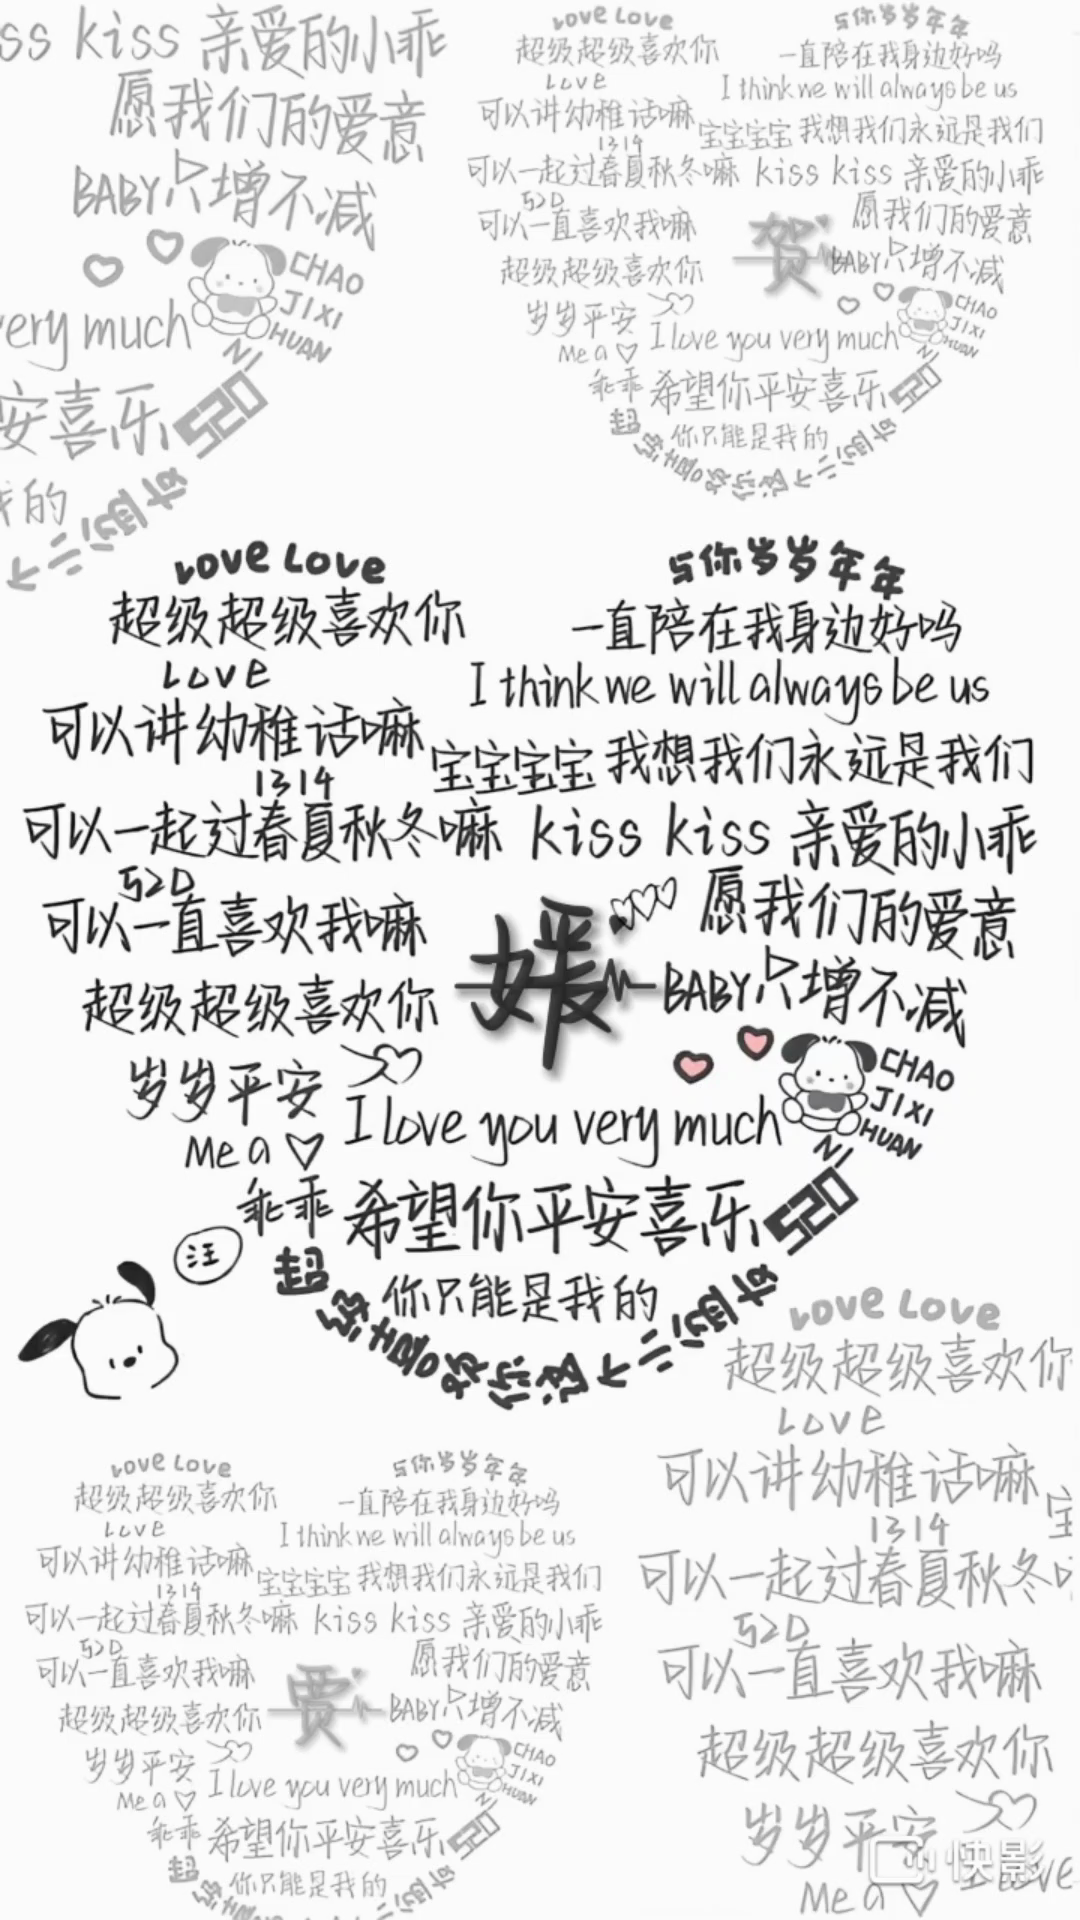 ss kiss 亲爱的小乖
愿我们的爱意
BABY只增不减
CHAO
JIXI
HUAN
NI
very much
安喜乐 520
我的
这个二次函数
LOVE LOVE
与你岁岁年年
超级超级喜欢你
一直陪在我身边好吗
LOVE
I think we will always be us
可以讲幼稚话嘛
宝宝宝宝 我想我们永远是我们
1314
可以一起过春夏秋冬嘛 kiss kiss 亲爱的小乖
520
可以一直喜欢我嘛
贺
愿我们的爱意
BABY只增不减
超级超级喜欢你
岁岁平安
CHAO
JIXI
HUAN
NI
I love you very much
Me a
乖乖 希望你平安喜乐 520
你只能是我的
LOVE LOVE
与你岁岁年年
超级超级喜欢你
一直陪在我身边好吗
LOVE
I think we will always be us
可以讲幼稚话嘛
宝宝宝宝 我想我们永远是我们
1314
可以一起过春夏秋冬嘛 kiss kiss 亲爱的小乖
520
可以一直喜欢我嘛
媛
愿我们的爱意
BABY只增不减
超级超级喜欢你
岁岁平安
CHAO
JIXI
HUAN
NI
I love you very much
Me a
乖乖 希望你平安喜乐 520
你只能是我的
汪
LOVE LOVE
超级超级喜欢你
LOVE
可以讲幼稚话嘛
宝
1314
可以一起过春夏秋冬
520
可以一直喜欢我嘛
超级超级喜欢你
岁岁平安
I love
Me a
LOVE LOVE
与你岁岁年年
超级超级喜欢你
一直陪在我身边好吗
LOVE
I think we will always be us
可以讲幼稚话嘛
宝宝宝宝 我想我们永远是我们
1314
可以一起过春夏秋冬嘛 kiss kiss 亲爱的小乖
520
可以一直喜欢我嘛
贾
愿我们的爱意
BABY只增不减
超级超级喜欢你
岁岁平安
CHAO
JIXI
HUAN
NI
I love you very much
Me a
乖乖 希望你平安喜乐 520
你只能是我的
快影